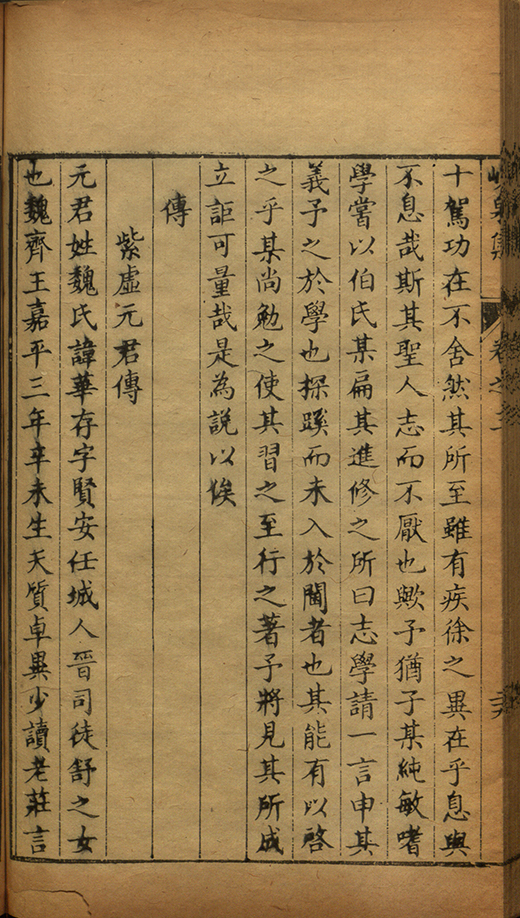 峴泉集
卷之
十駕功在不舍然其所至雖有疾徐之異在乎息與
不息哉斯其聖人志而不厭也歟予猶子某純敏嗜
學嘗以伯氏某扁其進修之所曰志學請一言申其
義予之於學也探蹊而未入於閫者也其能有以啓
之乎某尚勉之使其習之至行之著予將見其所成
立詎可量哉是為説以俟
傳
紫虛元君傳
元君姓魏氏諱華存字賢安任城人晉司徒舒之女
也魏齊王嘉平三年辛未生天質卓異少讀老莊言